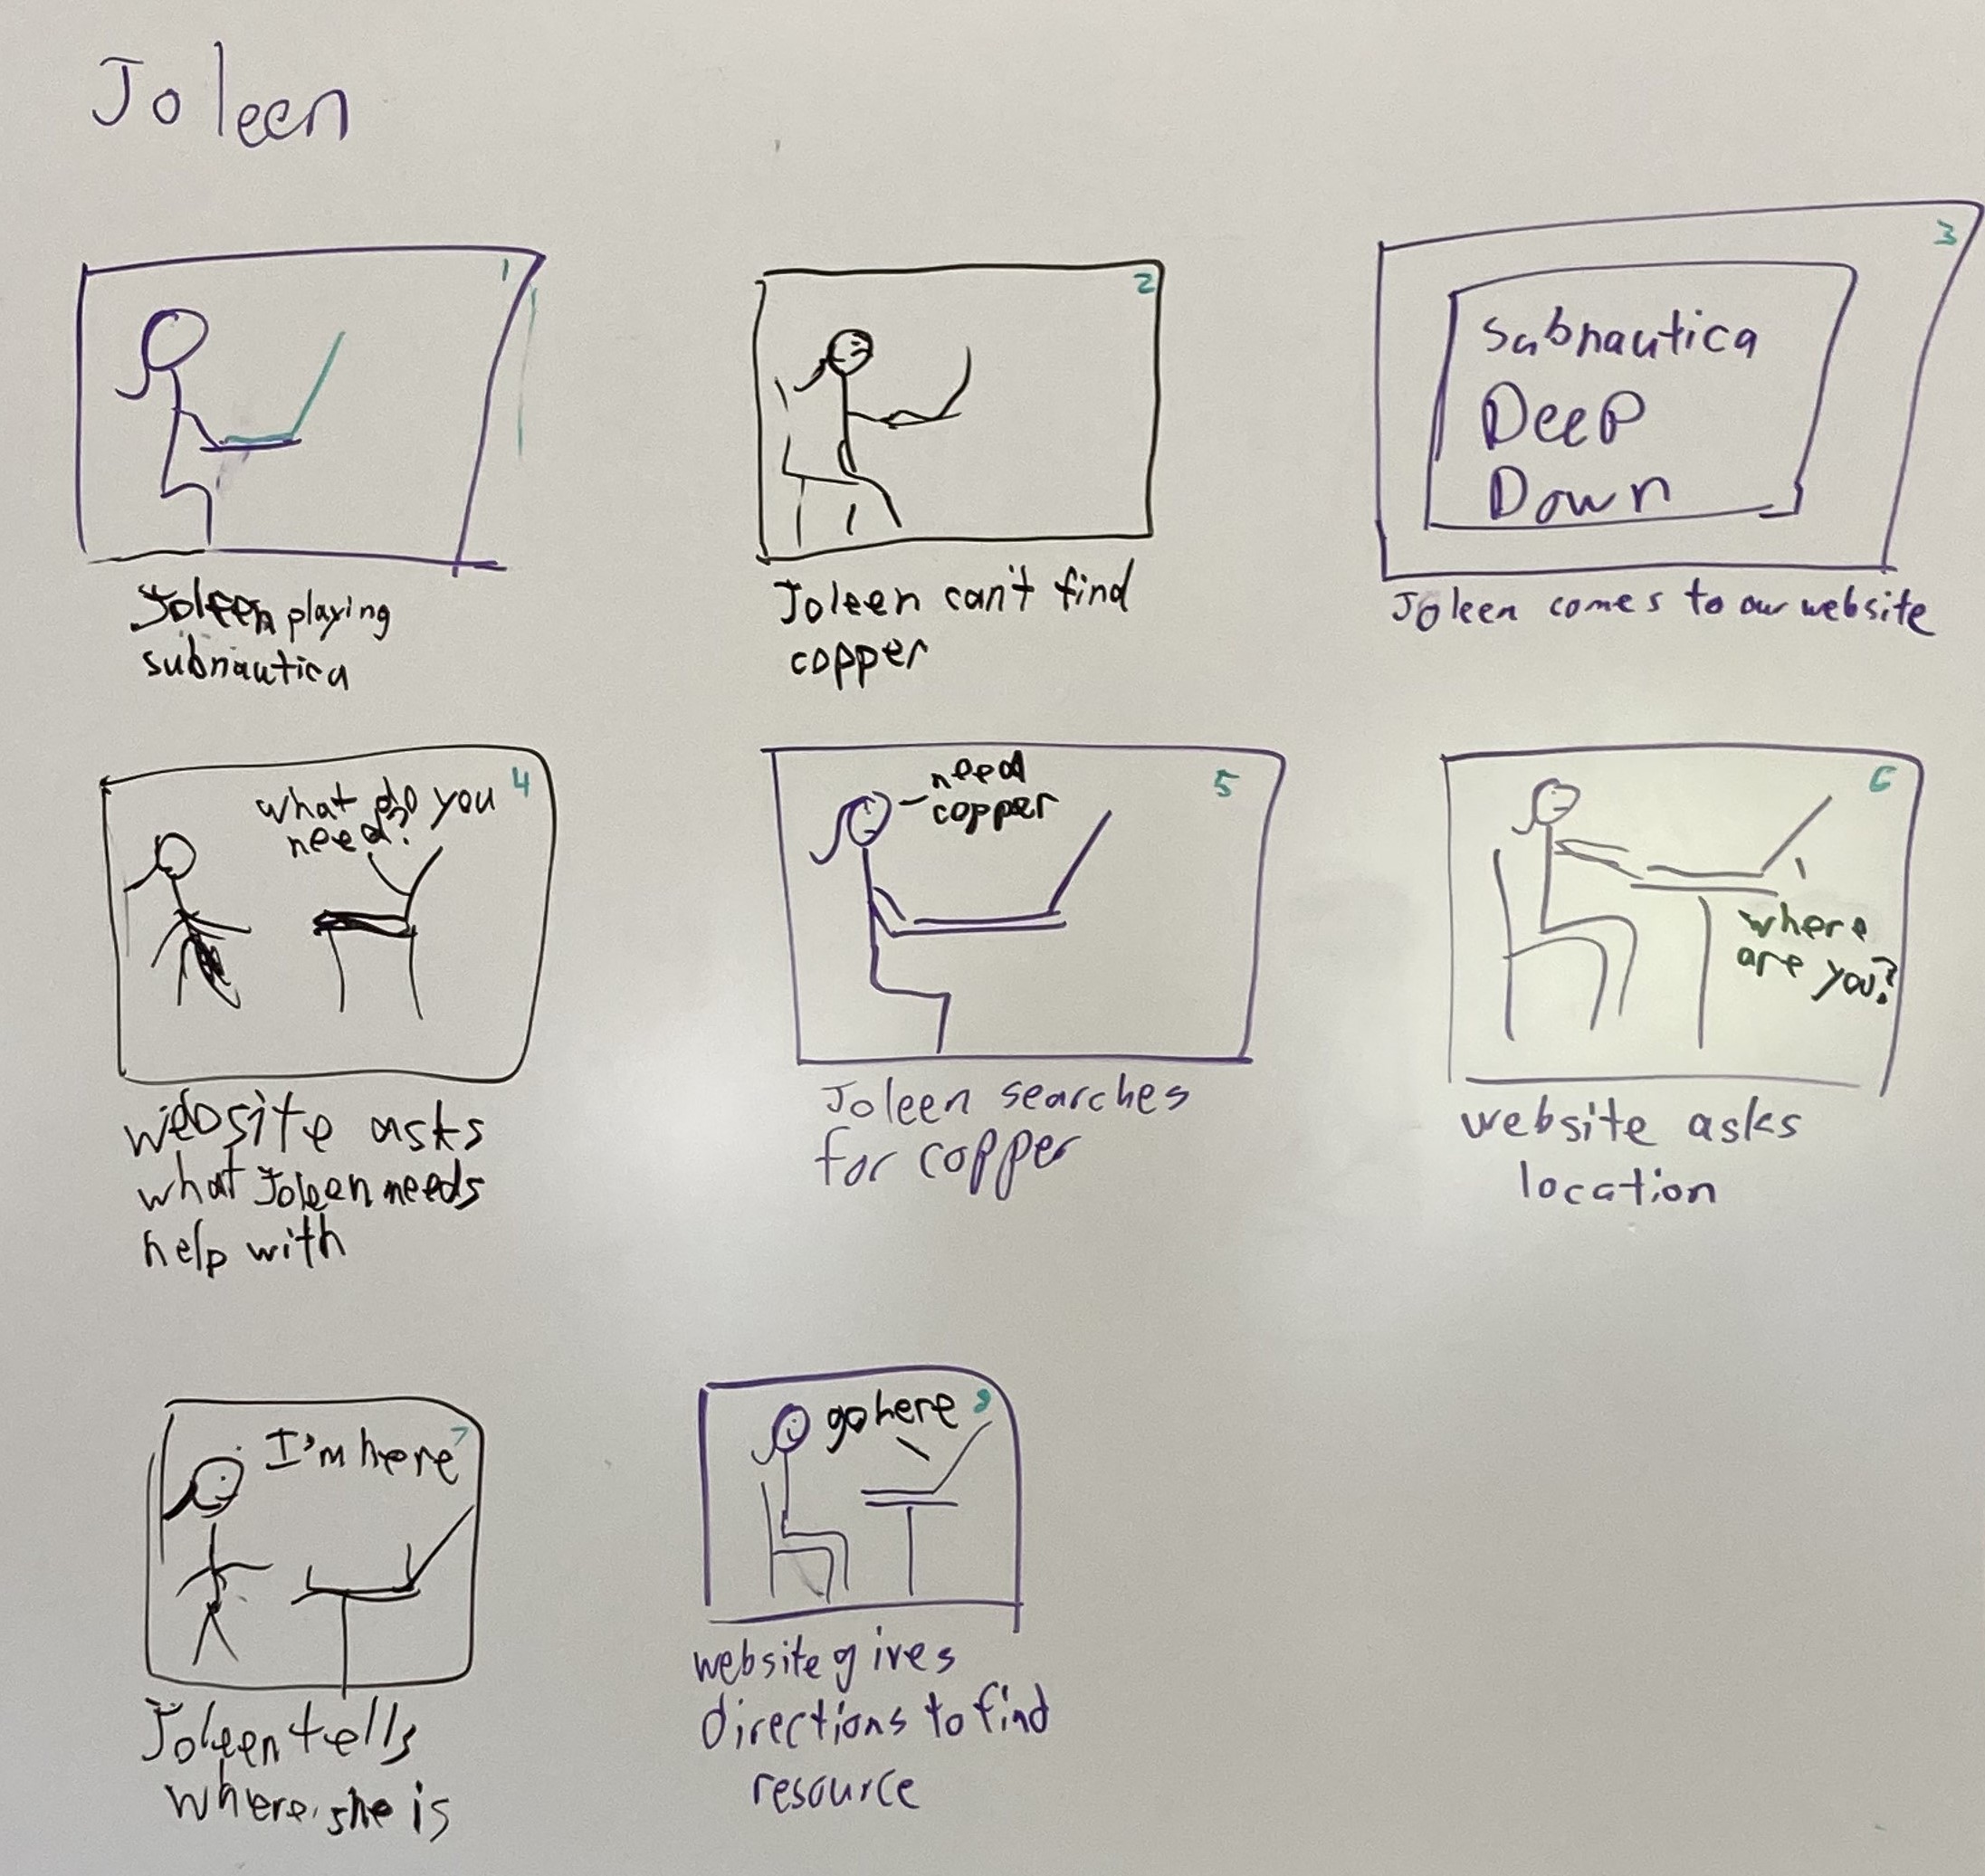 Joleen
1
Joleen playing
subnautica
2
Joleen can't find
copper
3
Subnautica
Deep
Down
Joleen comes to our website
4
what do you
need?
website asks
what Joleen needs
help with
5
need
copper
Joleen searches
for copper
6
where
are you?
website asks
location
7
I'm here
Joleen tells
where she is
8
go here
website gives
directions to find
resource